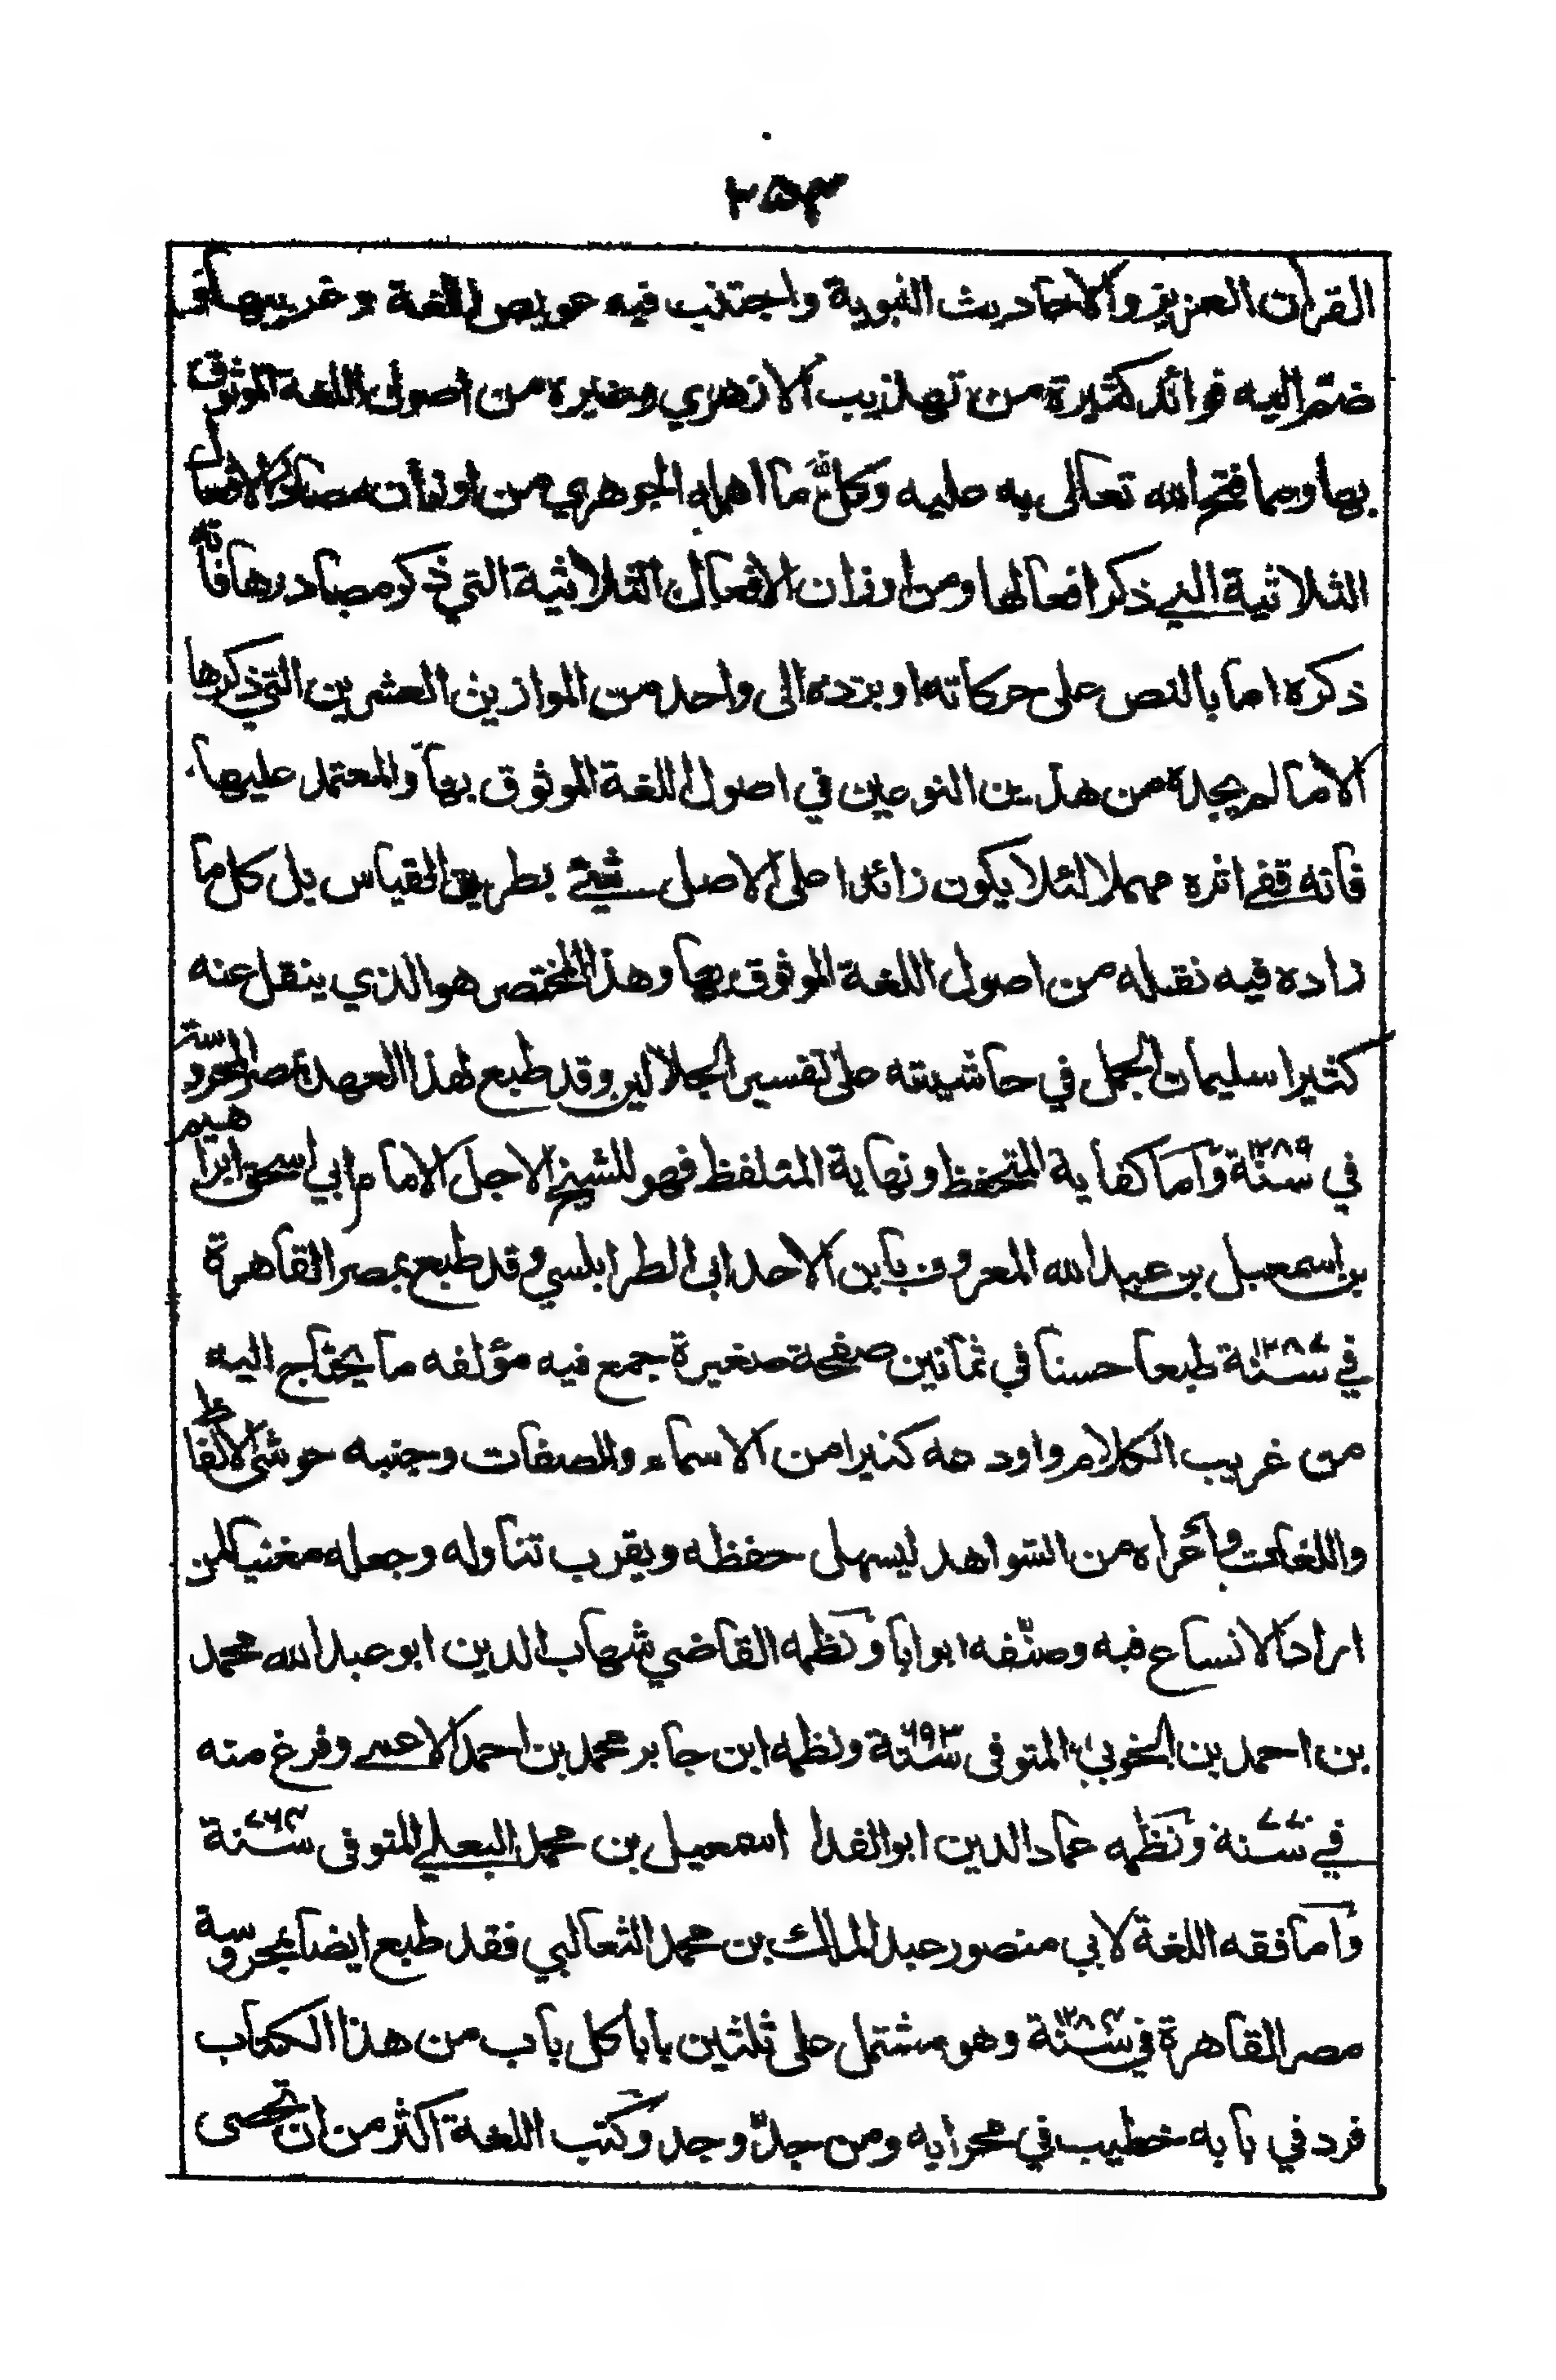 ٢٥٣
القران العزيز والاحاديث النبوية واجتنب فيه عويص اللغة وغريبها و
ضم اليه فوائد كثيرة من تهذيب الازهري وغيره من اصول اللغة الموثوق
بها ومما فتح الله تعالى به عليه وكل ما اهمله الجوهري من اوزان مصادر الافعال
الثلاثية التي ذكر افعالها ومن اوزان الافعال الثلاثية التي ذكر مصادرها فانه
ذكره اما بالنص على حركاته او برده الى واحد من الموازين العشرين التي ذكرها
الا ما لم يجده من هذين النوعين في اصول اللغة الموثوق بها والمعتمد عليها
فانه قفى اثره مهملا لئلا يكون زائدا على الاصل شيئ بطريق القياس بل كل ما
زاده فيه نقله من اصول اللغة الموثوق بها وهذا المختصر هو الذي ينقل عنه
كثيرا سليمان الجمل في حاشيته على تفسير الجلالين وقد طبع لهذا العهد بمصر المحروسة
في سنة ١٢٨٩ واما كفاية المتحفظ ونهاية المتلفظ فهو للشيخ الاجل الامام ابي اسحق ابراهيم
بن اسمعيل بن عبد الله المعروف بابن الاحدابى الطرابلسي وقد طبع بمصر القاهرة
في سنة ١٢٨٧ طبعا حسنا في ثمانين صفحة صغيرة جمع فيه مؤلفه ما يحتاج اليه
من غريب الكلام واودعه كثيرا من الاسماء والصفات وجنبه حوشي الالفاظ
واللغات واعراه من الشواهد ليسهل حفظه ويقرب تناوله وجعله مغنيا لمن
اراد الاتساع فيه وصنفه ابوابا ونظمه القاضي شهاب الدين ابو عبد الله محمد
بن احمد بن الخوبي المتوفى سنة ٦٩٣ ونظمه ابن جابر محمد بن احمد الاعمى وفرغ منه
في سنة ٧٧٠ ونظمه عماد الدين ابو الفدا اسمعيل بن محمد البعلي المتوفى سنة ٧٦٤
واما فقه اللغة لابي منصور عبد الملك بن محمد الثعالبي فقد طبع ايضا بمحروسة
مصر القاهرة في سنة ١٢٨٤ وهو مشتمل على ثلثين بابا كل باب من هذا الكتاب
فرد في بابه خطيب في محرابه ومن جد وجد وكتب اللغة اكثر من ان تحصى